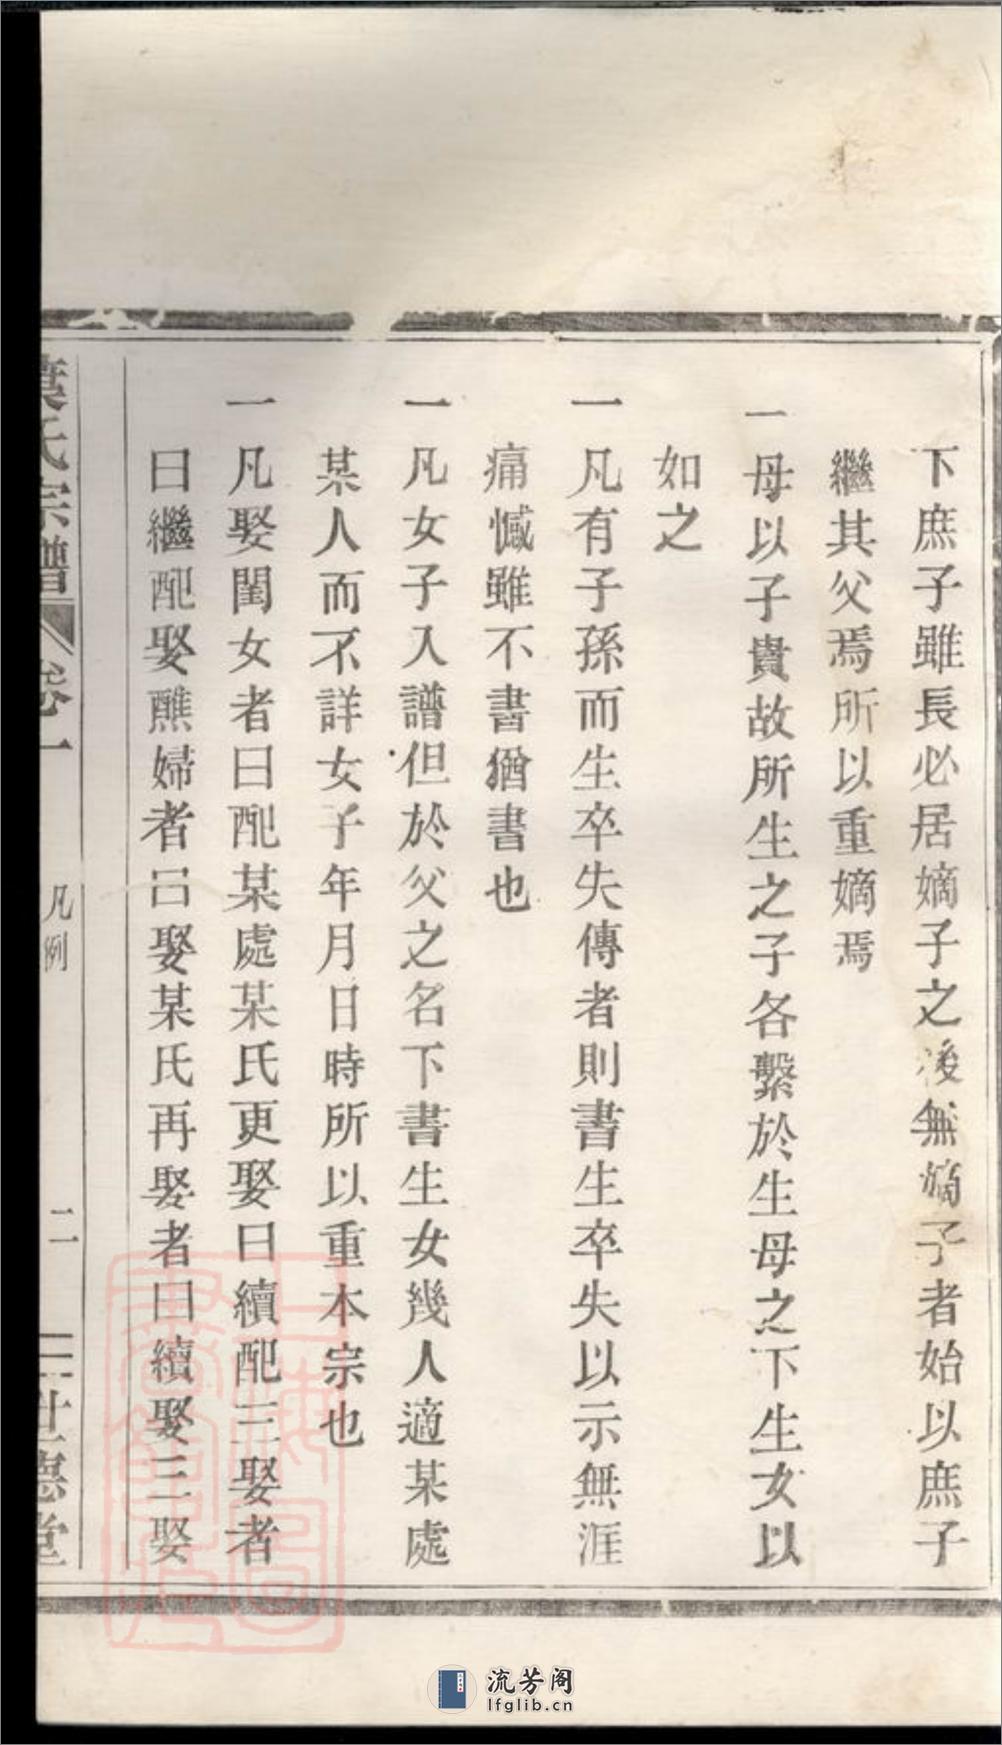 下庶子雖長必居嫡子之後無嫡子者始以庶子
繼其父焉所以重嫡焉
一母以子貴故所生之子各繫於生母之下生女以
如之
一凡有子孫而生卒失傳者則書生卒失以示無涯
痛憾雖不書猶書也
一凡女子入譜但於父之名下書生女幾人適某處
某人而不詳女子年月日時所以重本宗也
一凡娶閨女者曰配某處某氏更娶曰續配三娶者
曰繼配娶醮婦者曰娶某氏再娶者曰續娶三娶
葉氏宗譜 卷一 凡例 二 世德堂
上海圖書館藏
流芳阁
lfglib.cn